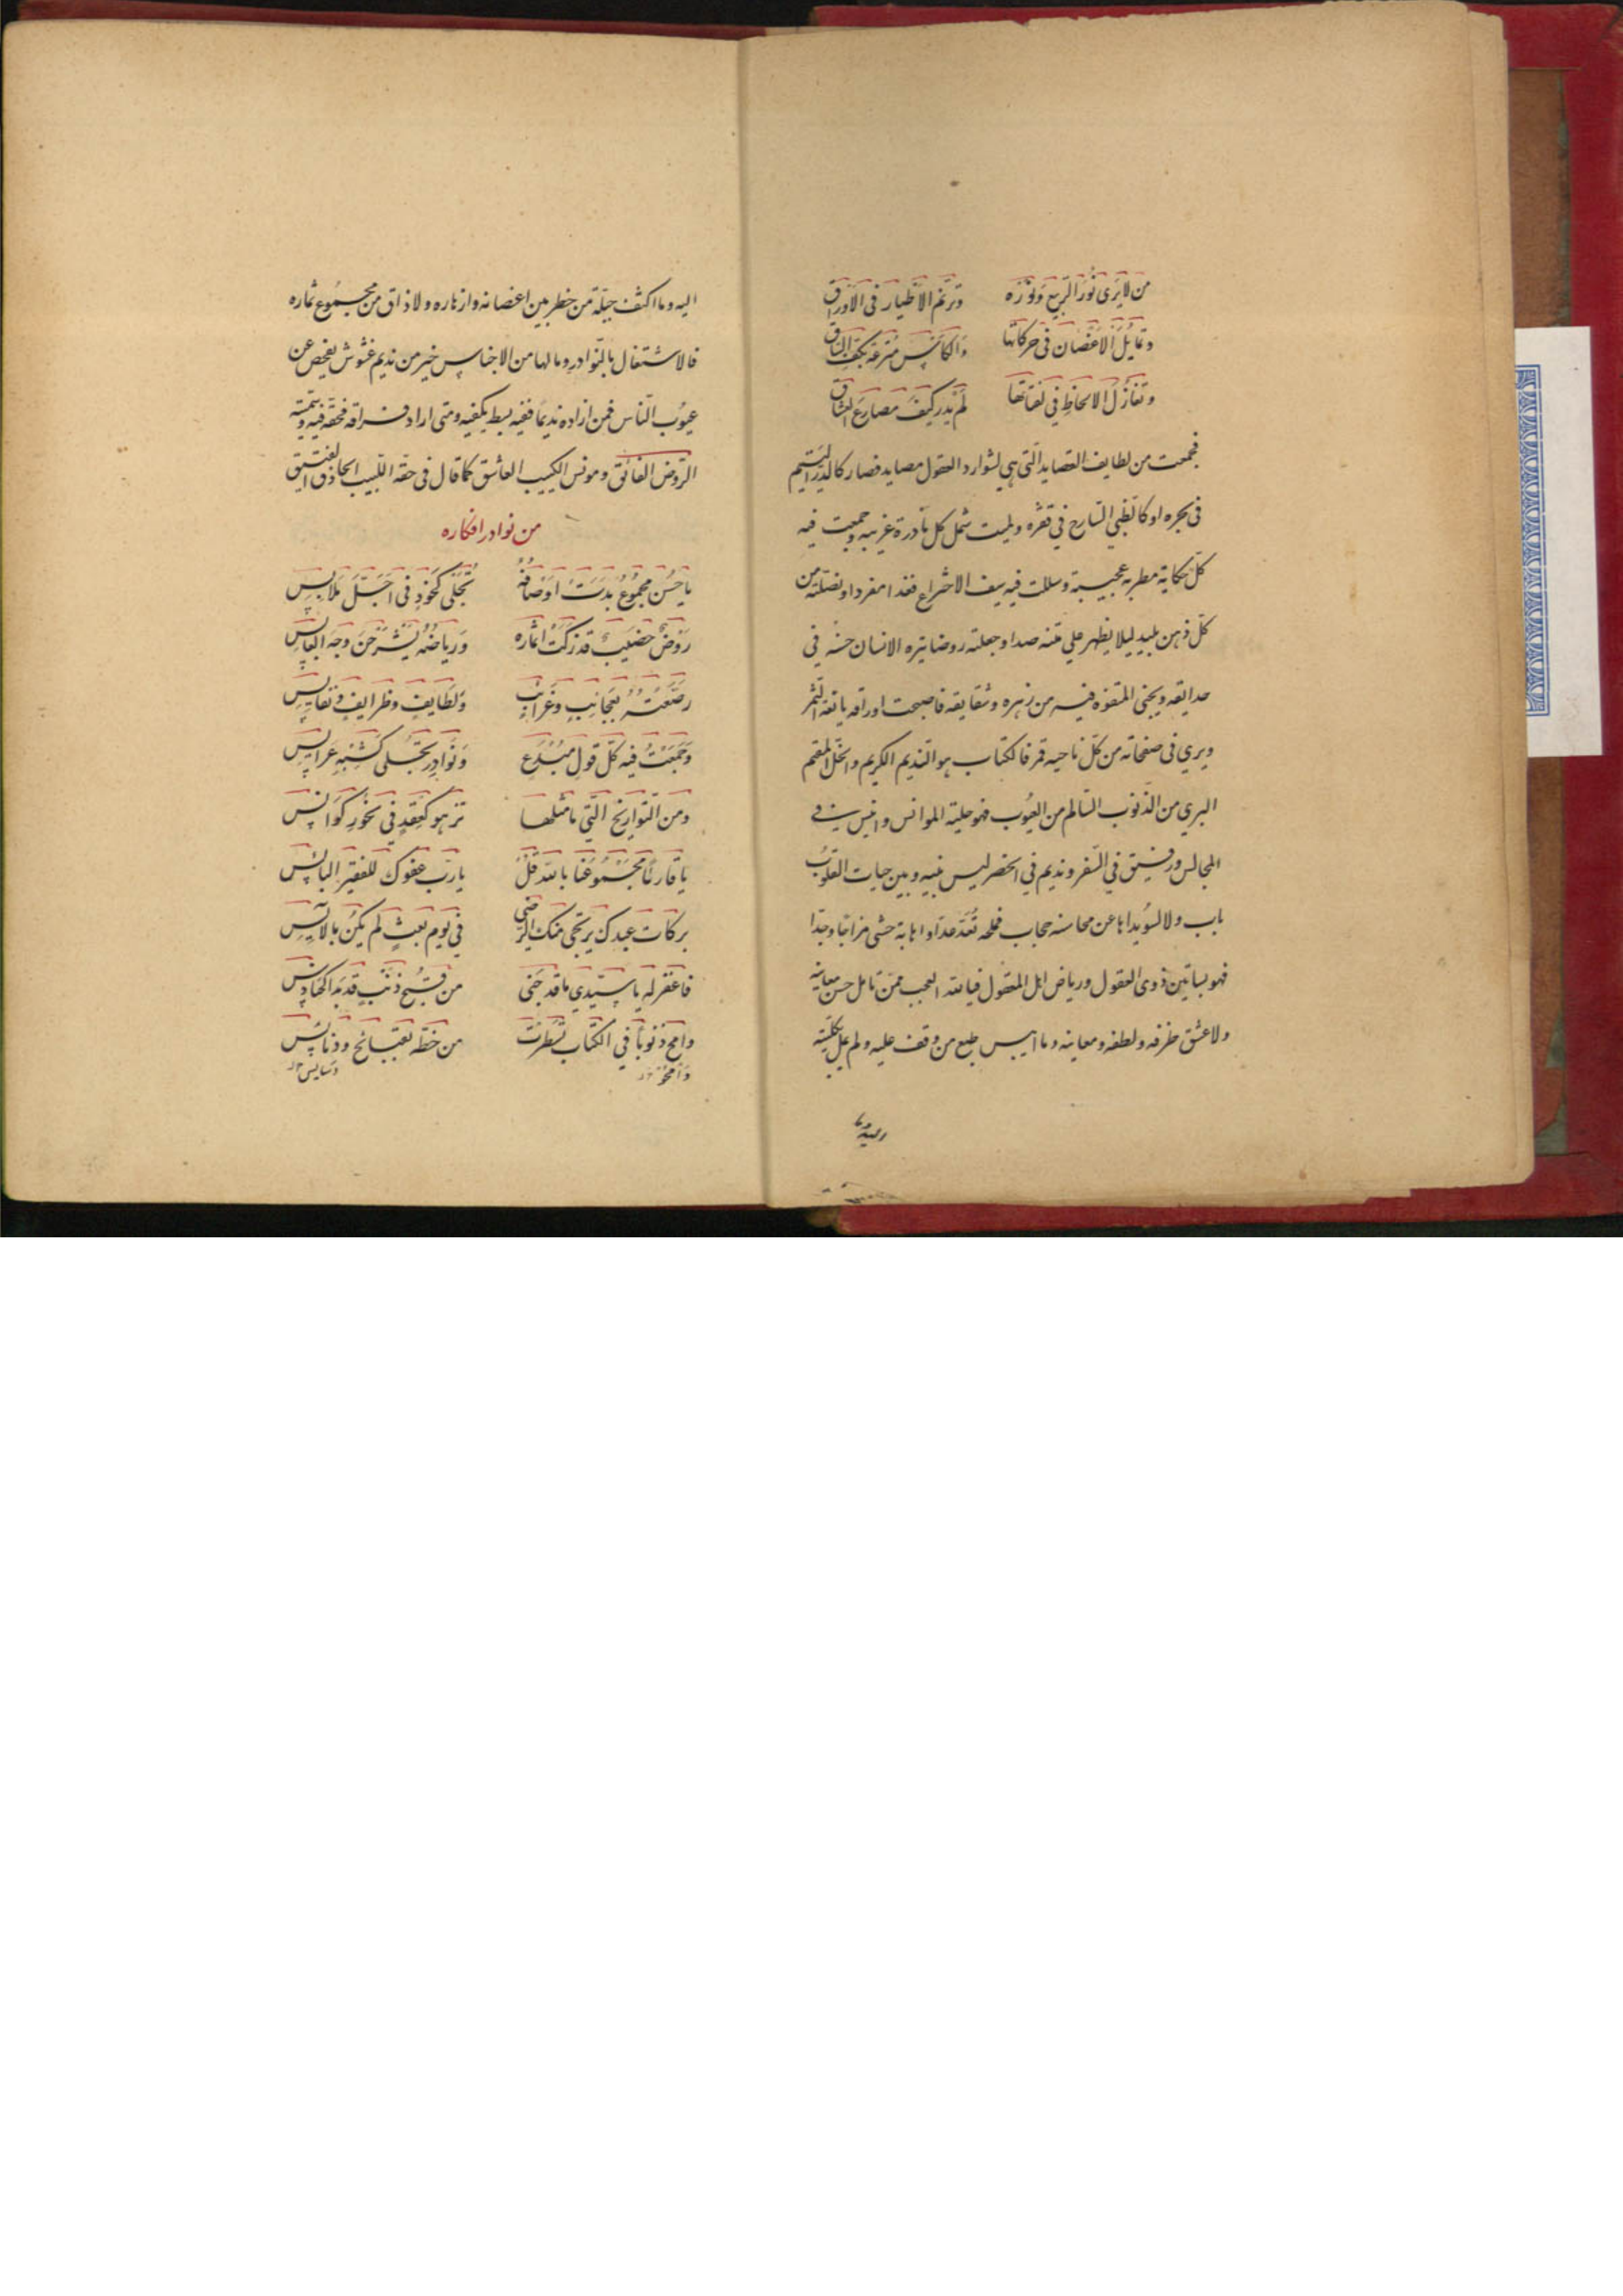 من لا يَرى نُورَ الربيع وَنَوْرَه وَترنّم الاَطيار في الاَوراق
وتمايُلَ الاَغصان في حركاتها وَالكأس مُترعَة بكفّ الساق
وتغازُلَ الالحاظِ في لفتاتها لَمْ يَدرِ كيفَ مصارعَ العشاق
فجمعت من لطايف القصايد الّتي هي لشوارد العقول مصايد فصار كالدّر اليتيم
في بحره او كالظبي السّارح في قفره ولميت شمل كل نادرة غريبه وجمعت فيه
كلّ حكاية مطربه عجيبة وسللت فيه سيف الاختراع فغدا منفردا ونصّلته من
كلّ ذهن بليد ليلا يظهر علي متنه صدا وجعلته روضا ينزه الانسان حسنه في
حدايقه ويجني المتفوه فيه من زهره وشقايقه فاصبحت اوراقه يانعة الثّمر
ويري في صفحاته من كلّ ناحيه قمر فالكتاب هو النّديم الكريم والخلّ المقيم
البري من الذنوب السّالم من العيُوب فهو حلية الموانس وانيس في
المجالس ورفيق في السّفر ونديم في الحضر ليس بينه وبين حيات القلوبُ
باب ولا لسُويداها عن محاسنه حجاب فملحه تُعَدّ عدّا واهابة حشي مزاحًا وجدّا
فهو بساتين ذوي العقول ورياض اهل المنقول فيالله العجب ممّن تامل حسن معانيه
ولا عشق ظرفه ولطفه ومعاينه وما ايبس طبع من وقف عليه ولم يمل بكلّيته
اليه وما اكثف جبلّة من خطر بين اغصانه وازهاره ولا ذاق من مجمُوع ثماره
فالاشتغال بالنّوادر وما لها من الاجناس خير من نديم غشوش يفحص عن
عيُوب النّاس فمن اراده نديمًا ففيه بسط يكفيه ومتى اراد فراقه فحقّه فيه وسمّيته
الرّوض الفائق ومونس الكييب العاشق كما قال في حقّه اللّبيب الحاذق الفتيق
من نوادر افكاره
يا حُسن مجمُوعُ بدَت اَوصافُهُ تُجْلى كخَودٍ في اَجَلّ مَلابس
رَوضٌ خصَيب قد زكَت اَثماره وَرياضُه يُشْرِحْنَ وجهَ العابس
رصّعتُهُ بعجَائبٍ وغَرائبٍ وَلطَايفٍ وظرايفٍ ونَفايس
وَجَمَعْتُ فيه كلّ قول مبُدَع وَنوادِر تجلى كشبهِ عَرايس
ومن التّواريخ الّتي ما مثلها تزهو كعِقدٍ في نحُورِ كوَانس
يا قارئًا مجَمُوعَنا بالله قُلْ يا ربّ عفوك للفقير البائس
بركات عبدك يرتجي منك الرّضي في يَوم بعثٍ لم يكُن بالآيس
فاغفر له يا سيّدي ما قد جَنى من قبُح ذنَبٍ قد بَدا كحنادِس
وامح ذنوبًا في الكتاب تسُطّرت من خطّه بقبائح ودنائس
وَامحُ دسَايس